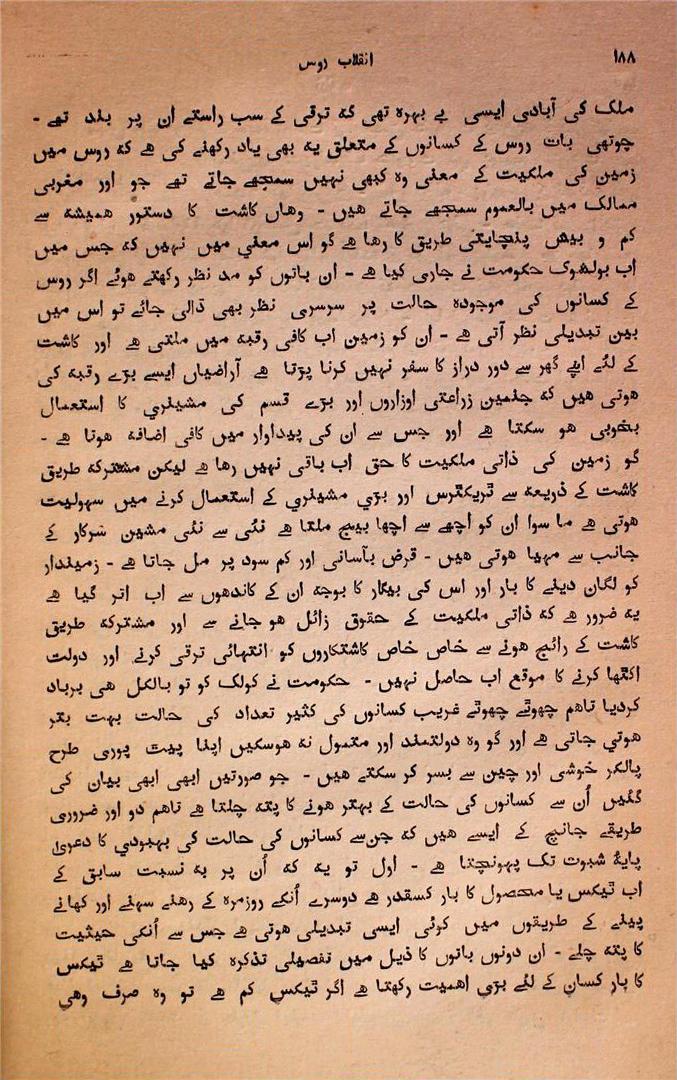 ۱۸۸
انقلاب روس
ملک کی آبادی ایسی بے بہرہ تھی کہ ترقی کے سب راستے ان پر بند تھے -
چوتھی بات روس کے کسانوں کے متعلق یہ بھی یاد رکھنے کی ھے کہ روس میں
زمین کی ملکیت کے معنی وہ کبھی نہیں سمجھے جاتے تھے جو اور مغربی
ممالک میں بالعموم سمجھے جاتے ھیں - وھاں کاشت کا دستور ھمیشہ سے
کم و بیش پنچایتی طریق کا رھا ھے گو اس معنی میں نہیں کہ جس میں
اب بولشوک حکومت نے جاری کیا ھے - ان باتوں کو مد نظر رکھتے ھوئے اگر روس
کے کسانوں کی موجودہ حالت پر سرسری نظر بھی ڈالی جائے تو اس میں
بین تبدیلی نظر آتی ھے - ان کو زمین اب کافی رقبہ میں ملتی ھے اور کاشت
کے لئے اپنے گھر سے دور دراز کا سفر نہیں کرنا پڑتا ھے آراضیاں ایسے بڑے رقبہ کی
ھوتی ھیں کہ جنمیں زراعتی اوزاروں اور بڑے قسم کی مشینری کا استعمال
بخوبی ھو سکتا ھے اور جس سے ان کی پیداوار میں کافی اضافہ ھوتا ھے -
گو زمین کی ذاتی ملکیت کا حق اب باقی نہیں رھا ھے لیکن مشترکہ طریق
کاشت کے ذریعہ سے ٹریکٹرس اور بڑی مشینری کے استعمال کرنے میں سہولیت
ھوتی ھے ما سوا ان کو اچھے سے اچھا بیج ملتا ھے نئی سے نئی مشین سرکار کے
جانب سے مہیا ھوتی ھیں - قرض بآسانی اور کم سود پر مل جاتا ھے - زمیندار
کو لگان دینے کا بار اور اس کی بیگار کا بوجھ ان کے کاندھوں سے اب اتر گیا ھے
یہ ضرور ھے کہ ذاتی ملکیت کے حقوق زائل ھو جانے سے اور مشترکہ طریق
کاشت کے رائج ھونے سے خاص خاص کاشتکاروں کو انتہائی ترقی کرنے اور دولت
اکٹھا کرنے کا موقع اب حاصل نہیں - حکومت نے کولک کو تو بالکل ھی برباد
کردیا تاھم چھوٹے چھوٹے غریب کسانوں کی کثیر تعداد کی حالت بہت بہتر
ھوتی جاتی ھے اور گو وہ دولتمند اور متمول نہ ھوسکیں اپنا پیٹ پوری طرح
پالکر خوشی اور چین سے بسر کر سکتے ھیں - جو صورتیں ابھی ابھی بیان کی
گئیں اُن سے کسانوں کی حالت کے بہتر ھونے کا پتہ چلتا ھے تاھم دو اور ضروری
طریقے جانچ کے ایسے ھیں کہ جن سے کسانوں کی حالت کی بہبودی کا دعویٰ
پایۂ ثبوت تک پہونچتا ھے - اول تو یہ کہ اُن پر بہ نسبت سابق کے
اب ٹیکس یا محصول کا بار کسقدر ھے دوسرے اُنکے روزمرہ کے رھنے سہنے اور کھانے
پینے کے طریقوں میں کوئی ایسی تبدیلی ھوتی ھے جس سے اُنکی حیثیت
کا پتہ چلے - ان دونوں باتوں کا ذیل میں تفصیلی تذکرہ کیا جاتا ھے ٹیکس
کا بار کسان کے لئے بڑی اھمیت رکھتا ھے اگر ٹیکس کم ھے تو وہ صرف وھی